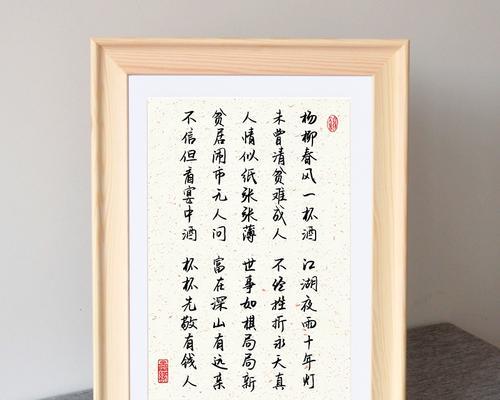 杨柳春风一杯酒 江湖夜雨十年灯
未曾清贫难成人 不经挫折永天真
人情似纸张张薄 世事如棋局局新
贫居闹市无人问 富在深山有远亲
不信但看宴中酒 杯杯先敬有钱人